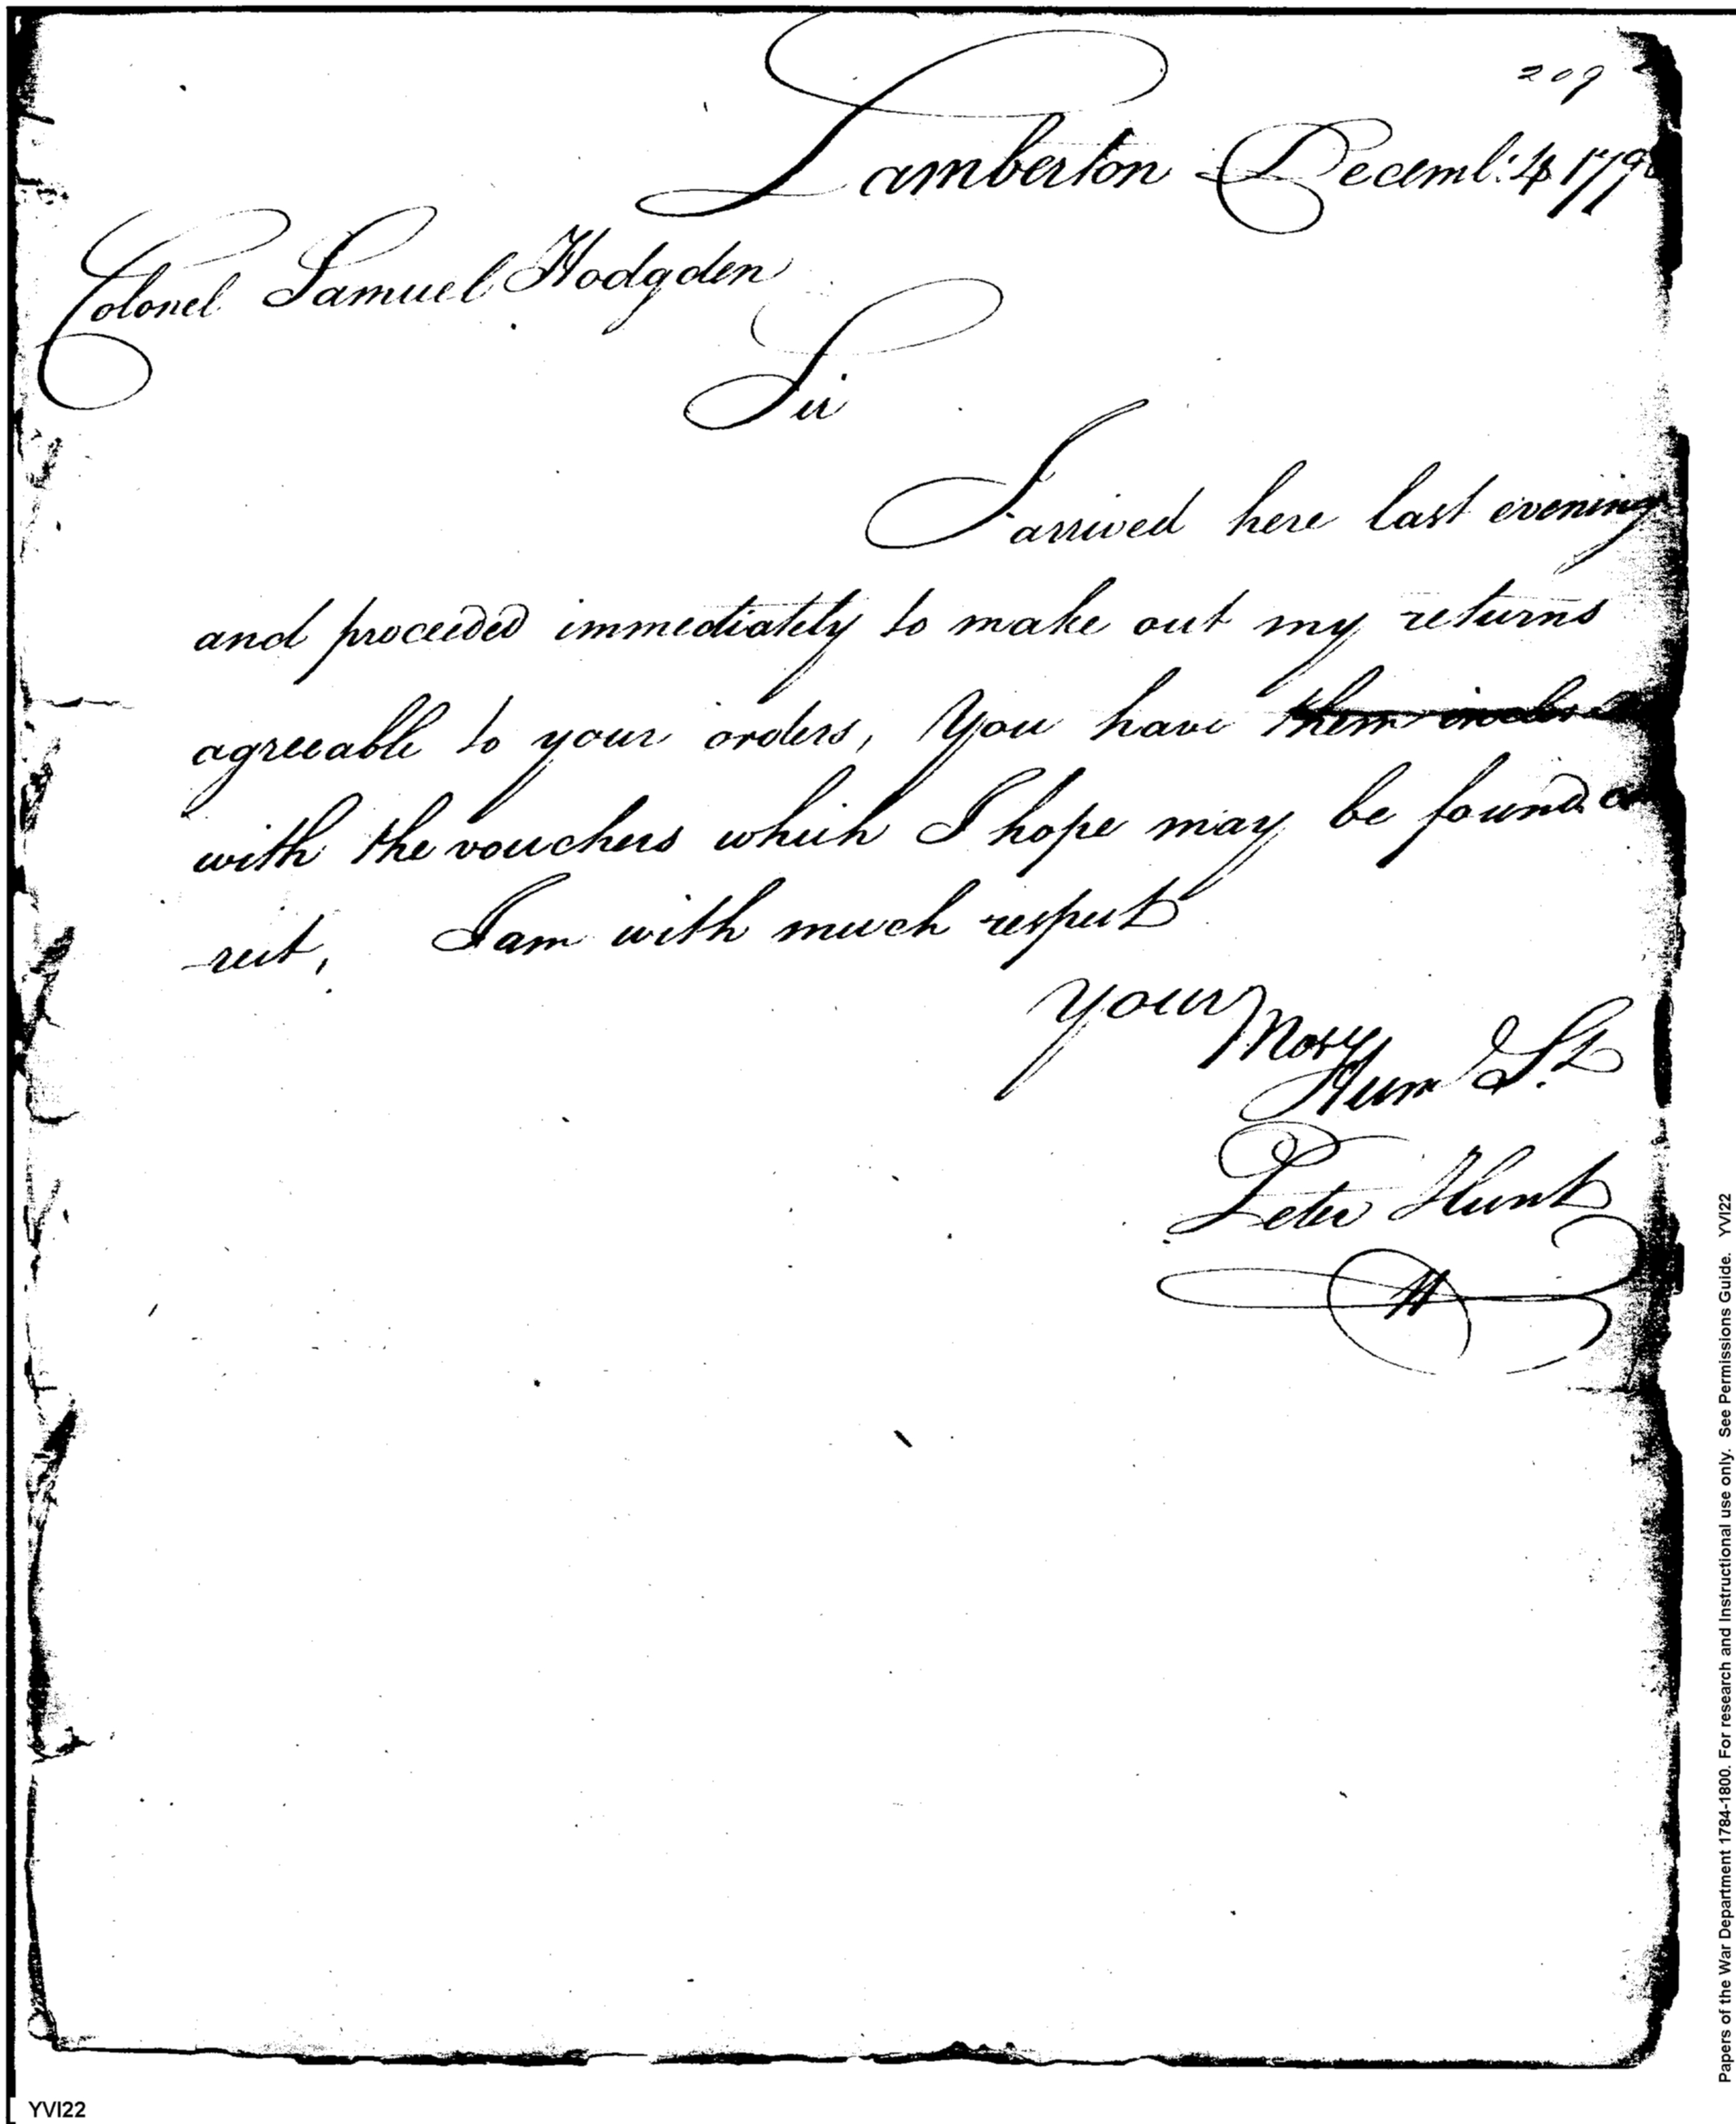 209
Lamberton Decemb: 4 179
Colonel Samuel Hodgden
Sir
I arrived here last evening
and proceeded immediately to make out my returns
agreeable to your orders, You have them inclos
with the vouchers which I hope may be found co
rect, I am with much respect
your Mos
Hum St
Peter Hunt
Papers of the War Department 1784-1800. For research and Instructional use only. See Permissions Guide. YVI22
YVI22